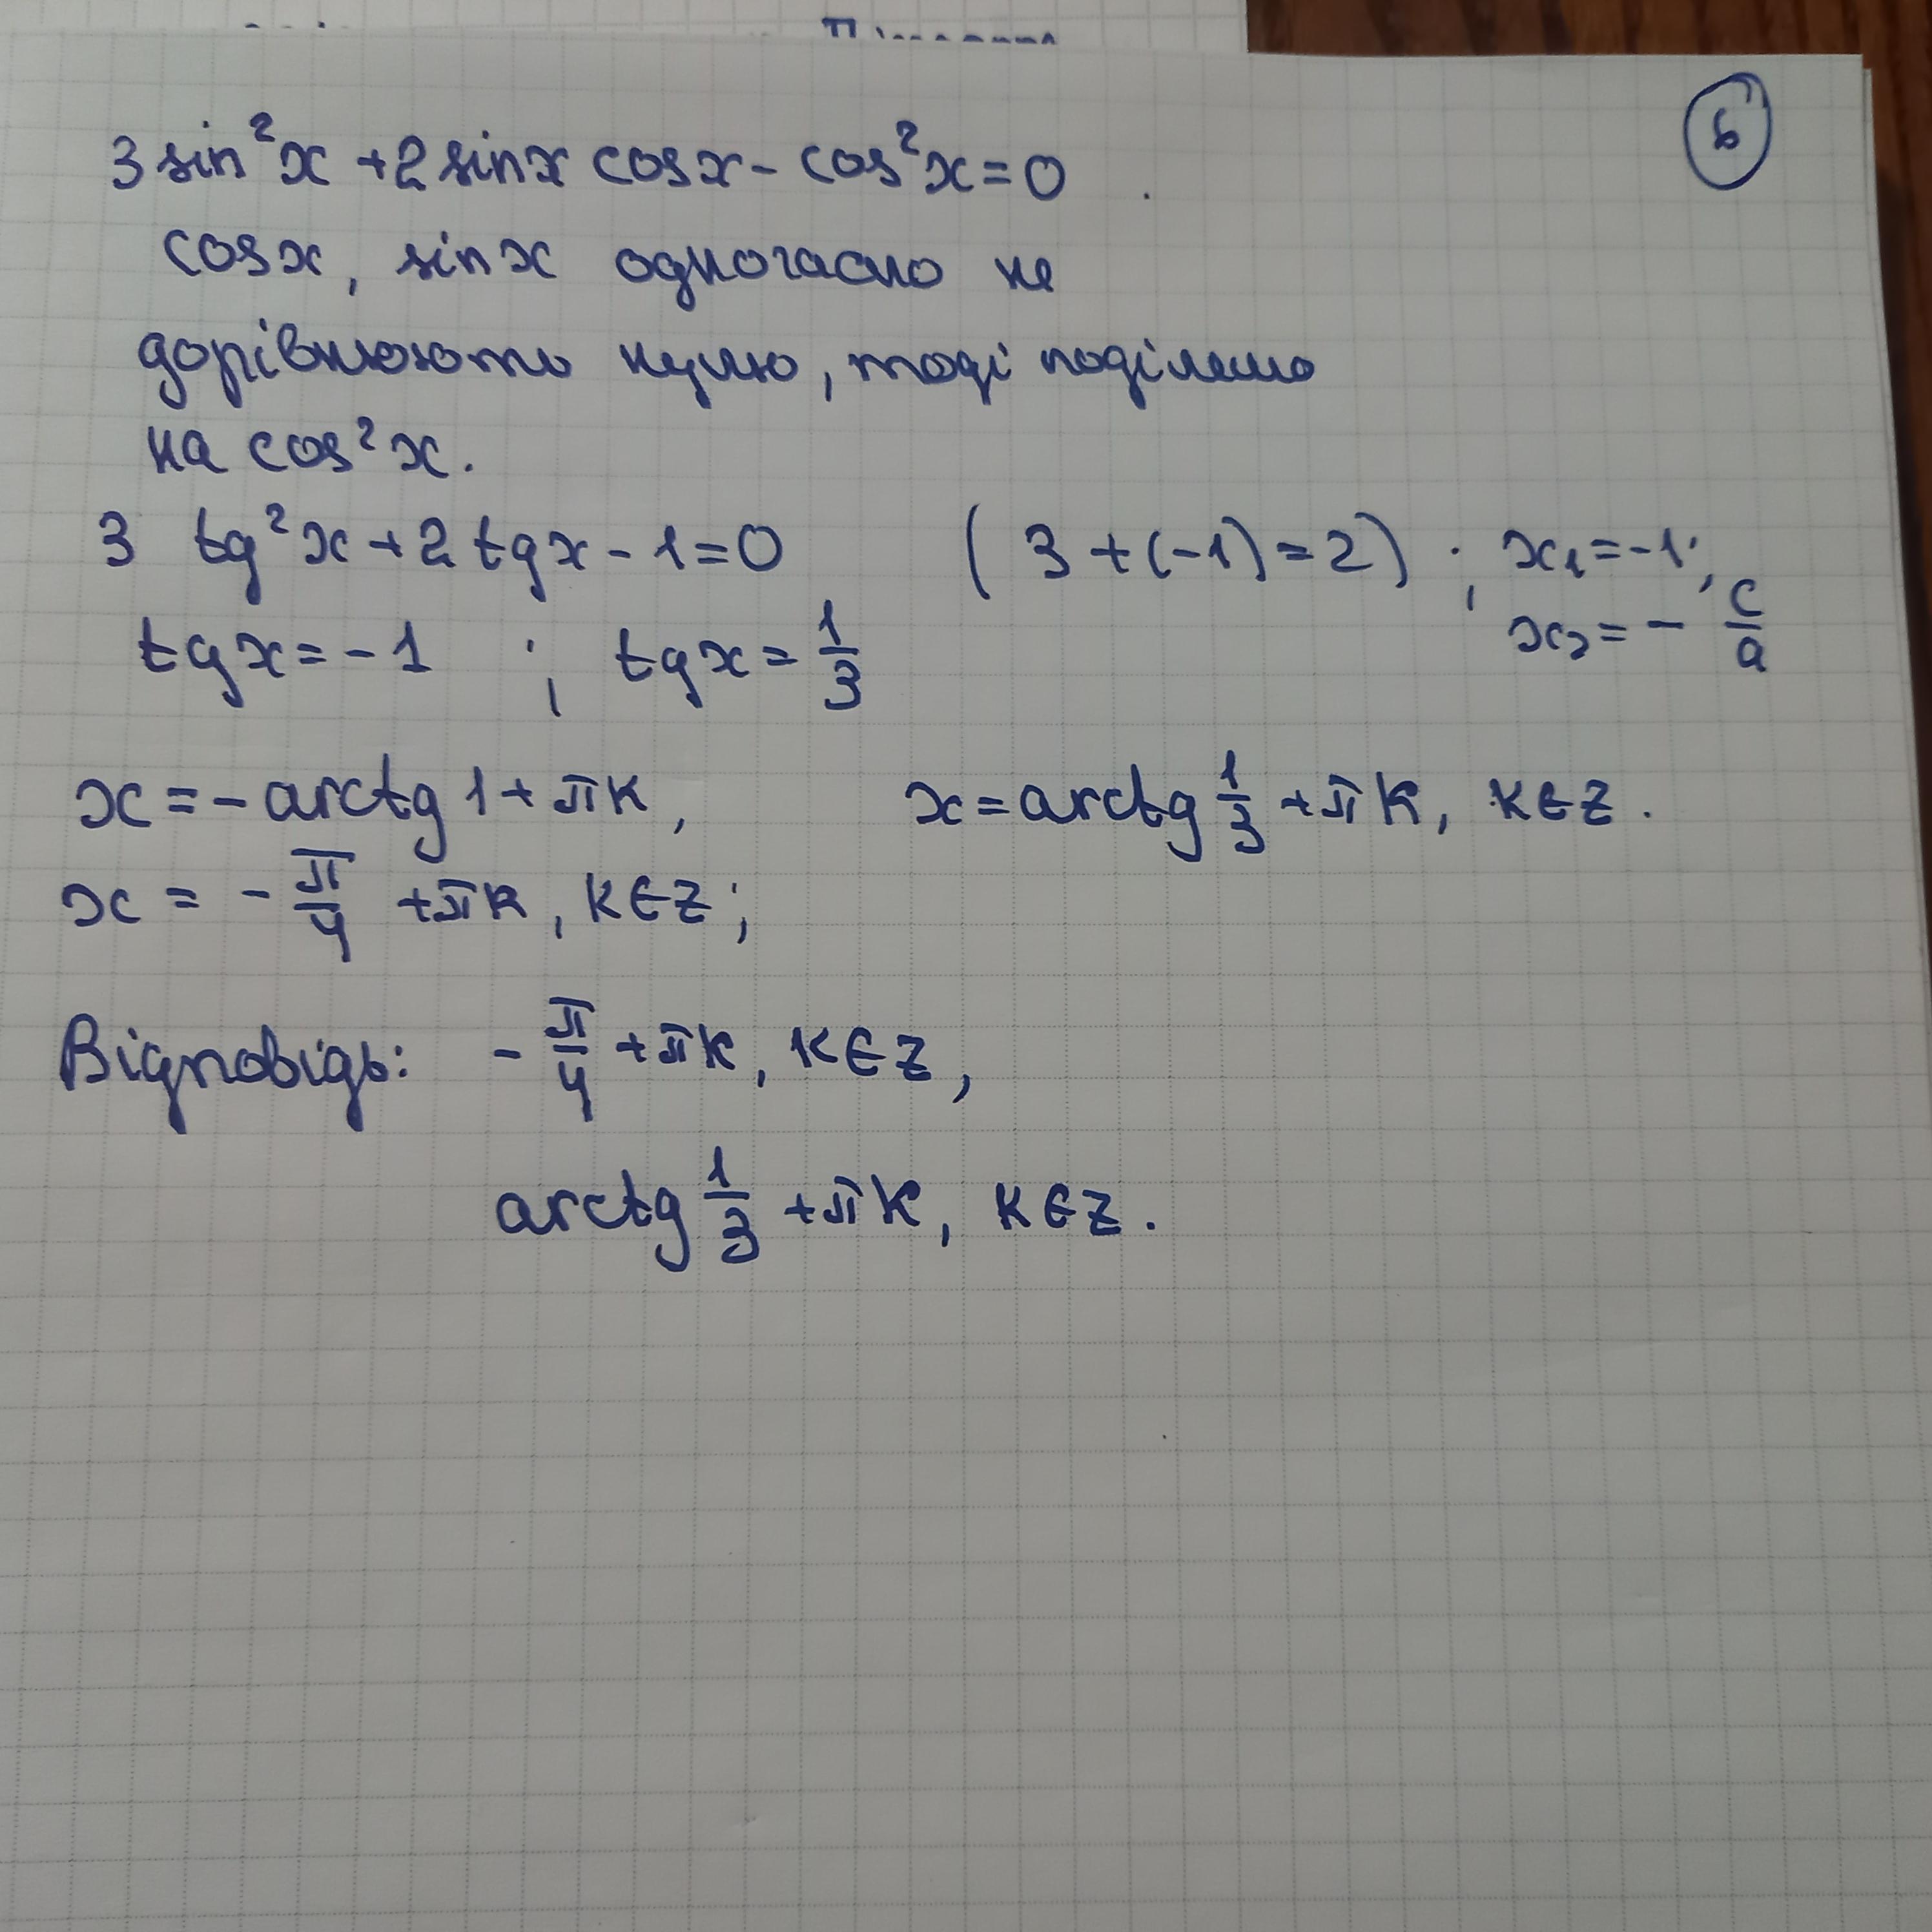 6
3 sin²x + 2 sinx cosx - cos²x = 0 .
cosx, sinx одночасно не
дорівнюють нулю, тоді поділимо
на cos²x.
3 tg²x + 2 tgx - 1 = 0 (3 + (-1) = 2) ; x₁ = -1;
x₂ = - c/a
tgx = -1 ; tgx = 1/3
x = - arctg 1 + πk, x = arctg 1/3 + πk, k ∈ Z.
x = - π/4 + πk, k ∈ Z;
Відповідь: - π/4 + πk, k ∈ Z,
arctg 1/3 + πk, k ∈ Z.